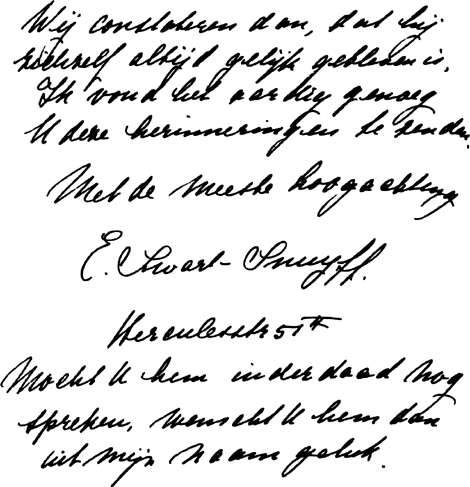 Wij constateren dan, dat hij
zichzelf altijd gelijk gebleven is.
Ik vond het aardig genoeg
U deze herinneringen te zenden.
Met de meeste hoogachting
E. Swart-Snuyff.
Herculesstr 51 II
Mocht U hem inderdaad nog
spreken, wenscht U hem dan
uit mijn naam geluk.